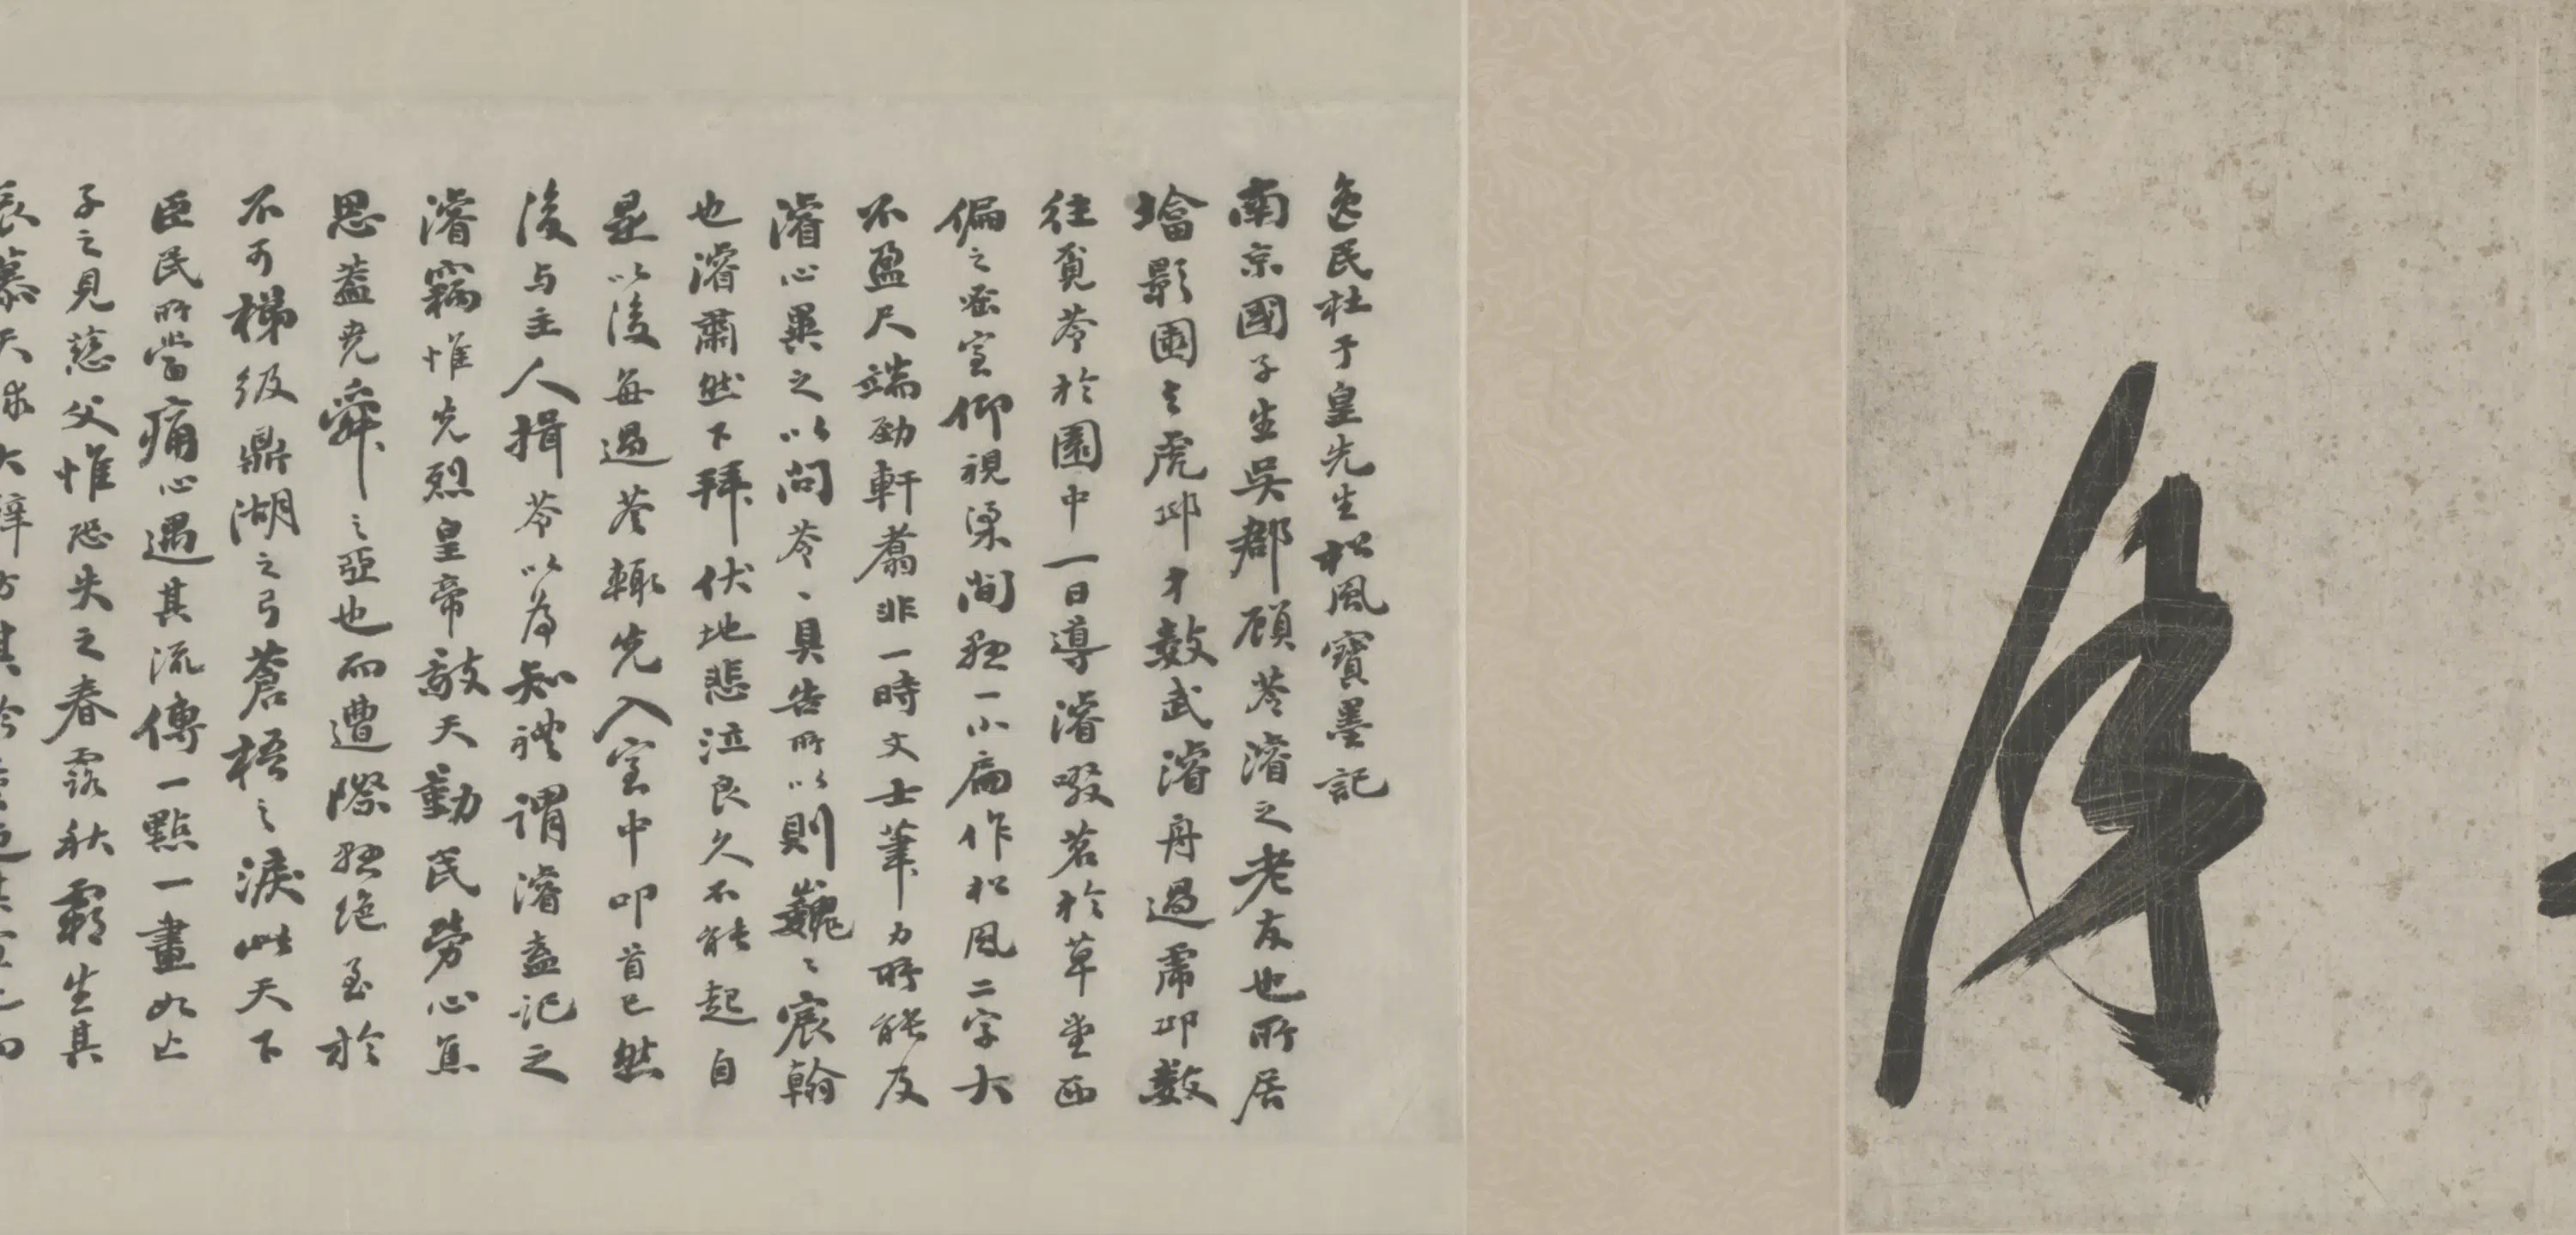 逸民杜于皇先生松風寶墨記
南京國子生吳郡顧苓濬之老友也所居
塔影園去虎邱才數武濬舟過虎邱數
往覓苓於園中一日導濬啜茗於草堂西
偏之密室仰視梁間懸一小扁作松風二字大
不盈尺端勁軒翥非一時文士筆力所能及
濬心異之以問苓〻具告所以則巍〻宸翰
也濬肅然下拜伏地悲泣良久不能起自
是以後每過苓輒先入室中叩首已然
後与主人揖苓以為知禮謂濬盍記之
濬竊惟先烈皇帝敬天勤民勞心焦
思蓋堯舜之亞也而遭際懸絕至於
不可梯級鼎湖之弓蒼梧之淚此天下
臣民所當痛心遇其流傳一點一畫如亡
子之見慈父惟恐失之春露秋霜生其